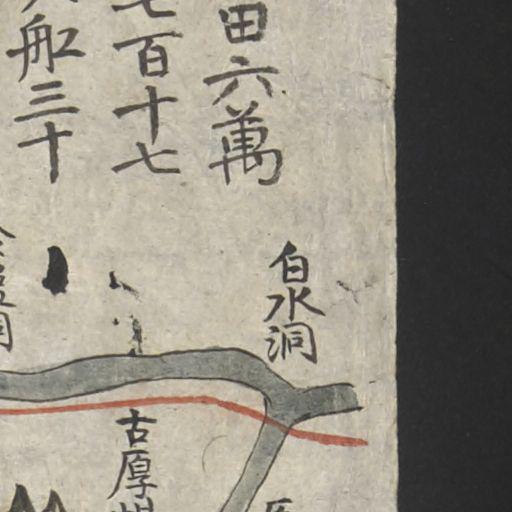 田六萬
七百十七
船三十
白水洞
古厚